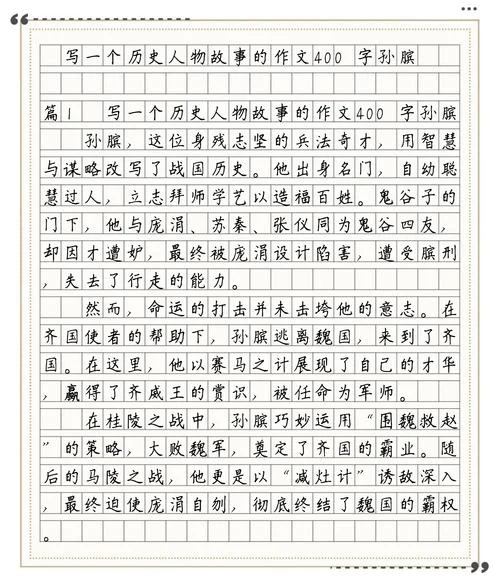 写一个历史人物故事的作文400 字孙膑
篇1 写一个历史人物故事的作文400 字孙膑
孙膑，这位身残志坚的兵法奇才，用智慧
与谋略改写了战国历史。他出身名门，自幼聪
慧过人，立志拜师学艺以造福百姓。鬼谷子的
门下，他与庞涓、苏秦、张仪同为鬼谷四友，
却因才遭妒，最终被庞涓设计陷害，遭受膑刑
，失去了行走的能力。
然而，命运的打击并未击垮他的意志。在
齐国使者的帮助下，孙膑逃离魏国，来到了齐
国。在这里，他以赛马之计展现了自己的才华
，赢得了齐威王的赏识，被任命为军师。
在桂陵之战中，孙膑巧妙运用“围魏救赵
”的策略，大败魏军，奠定了齐国的霸业。随
后的马陵之战，他更是以“减灶计”诱敌深入
，最终迫使庞涓自刎，彻底终结了魏国的霸权
。